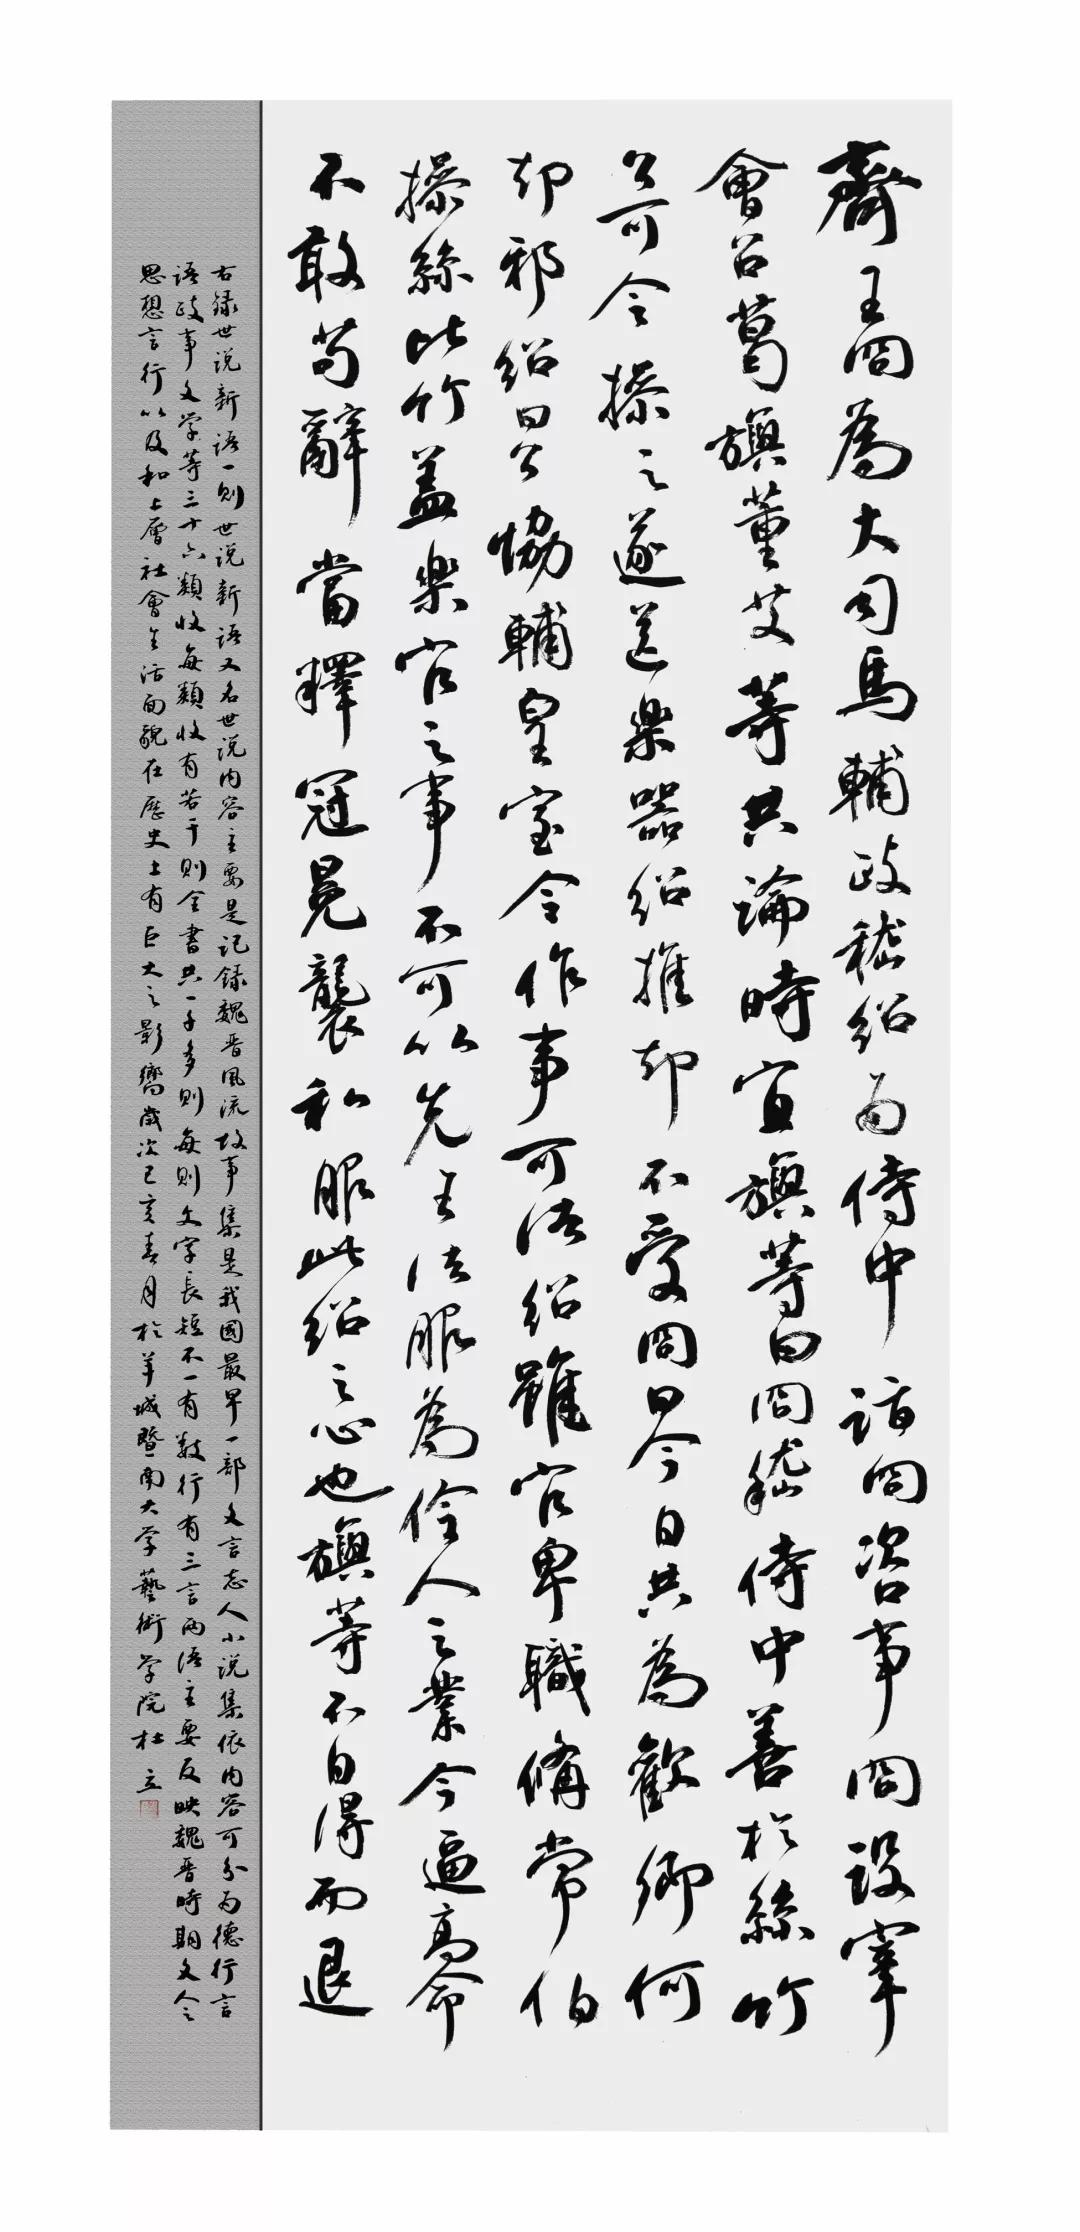 齊王冏為大司馬輔政嵇紹为侍中詣冏咨事冏設宰
會召葛旟董艾等共論時宜旟等白冏嵇侍中善於絲竹
公可令操之遂送楽器紹推却不受冏曰今日共為歡卿何
却邪紹曰公協輔皇室令作事可法紹雖官卑職備常伯
操絲比竹蓋楽官之事不可以先王法服為伶人之業今逼高命
不敢苟辭當釋冠冕襲私服此紹之心也旟等不自得而退
右録世说新语一则世说新语又名世说内容主要是记録魏晋風流故事集是我國最早一部文言志人小说集依内容可分为德行言
语政事文学等三十六類收每類收有若干则全書共一千多则每则文字長短不一有数行有三言两语主要反映魏晋時期文人
思想言行以及和上層社會生活面貌在歷史上有巨大之影響歲次己亥春月於羊城暨南大学藝術学院杜立